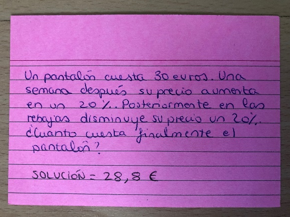 Un pantalón cuesta 30 euros. Una
semana después su precio aumenta
en un 20%. Posteriormente en las
rebajas disminuye su precio un 20%.
¿Cuánto cuesta finalmente el
pantalón?
SOLUCIÓN = 28,8 €